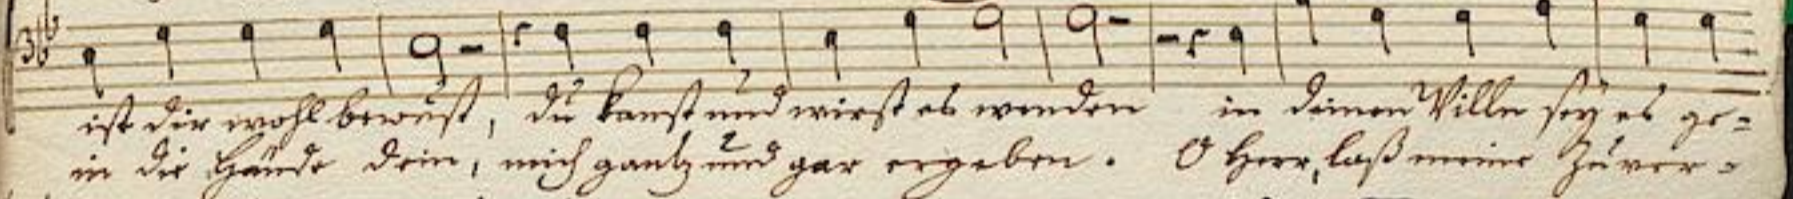 ist dir wohl bewust, du kanst und wirst es wenden in deinen Willn sey es ge=
in die Hände dein, mich gantz und gar ergeben. O Herr, laß meine Zuver=